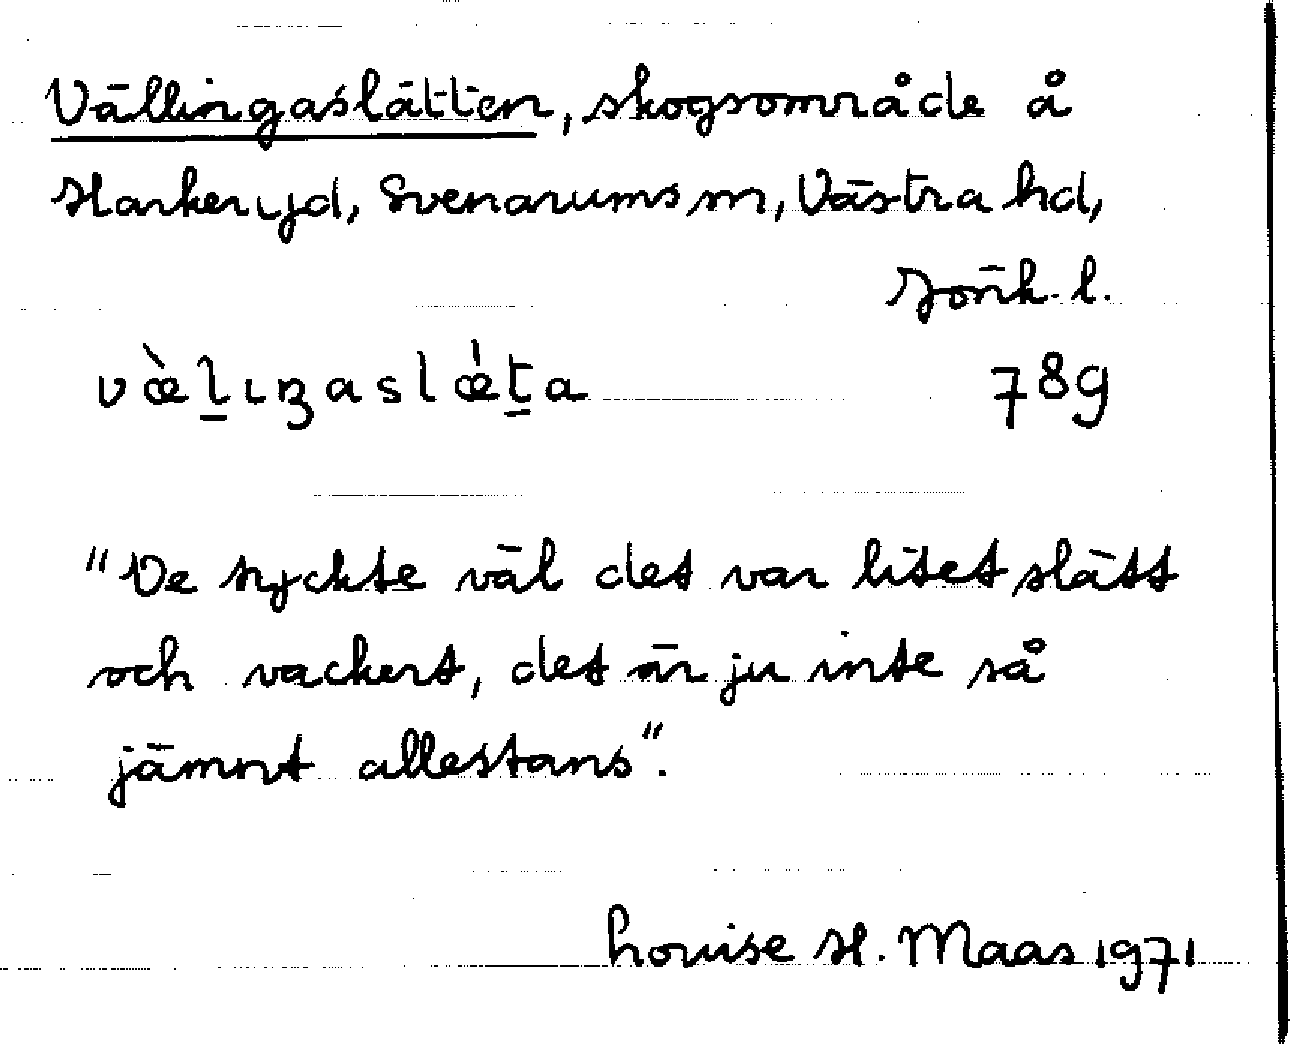 Vällingaslätten, skogsområde å
Harkeryd, Svenarums sn, Västra hd,
Jönk. l.
vὰ̀lıŋaslǽta 789
"De tyckte väl det var litet slätt
och vackert, det är ju inte så
jämnt allestans".
Louise H. Maas 1971